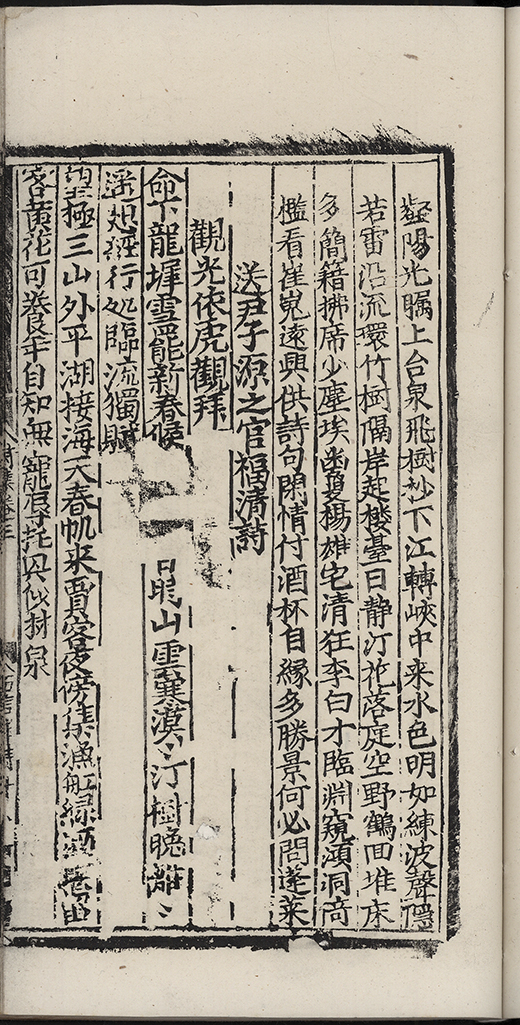 凝陽光矚上台泉飛樹杪下江轉峽中来水色明如練波聲隱
若雷沿流環竹樹隔岸起楼臺日静汀花落庭空野鶴回堆床
多簡籍拂席少塵埃幽夐楊雄宅清狂李白才臨淵窺澒洞奇
檻看崔嵬遠興供詩句閑情付酒杯自緣多勝景何必問蓬莱
送尹子源之官福清詩
觀光依虎觀拜
命下龍墀雪罷新春候 山雲襄漠〻汀樹晚離〻
遥 經行处臨流獨賦
望極三山外平湖接海天春帆来賈客 傍集漁舡緑酒
客黄花可養年自知無寵辱托